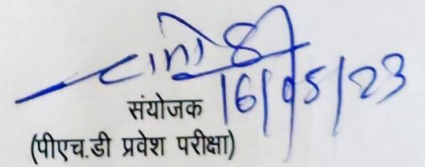 16/05/23
संयोजक
(पीएच.डी प्रवेश परीक्षा)